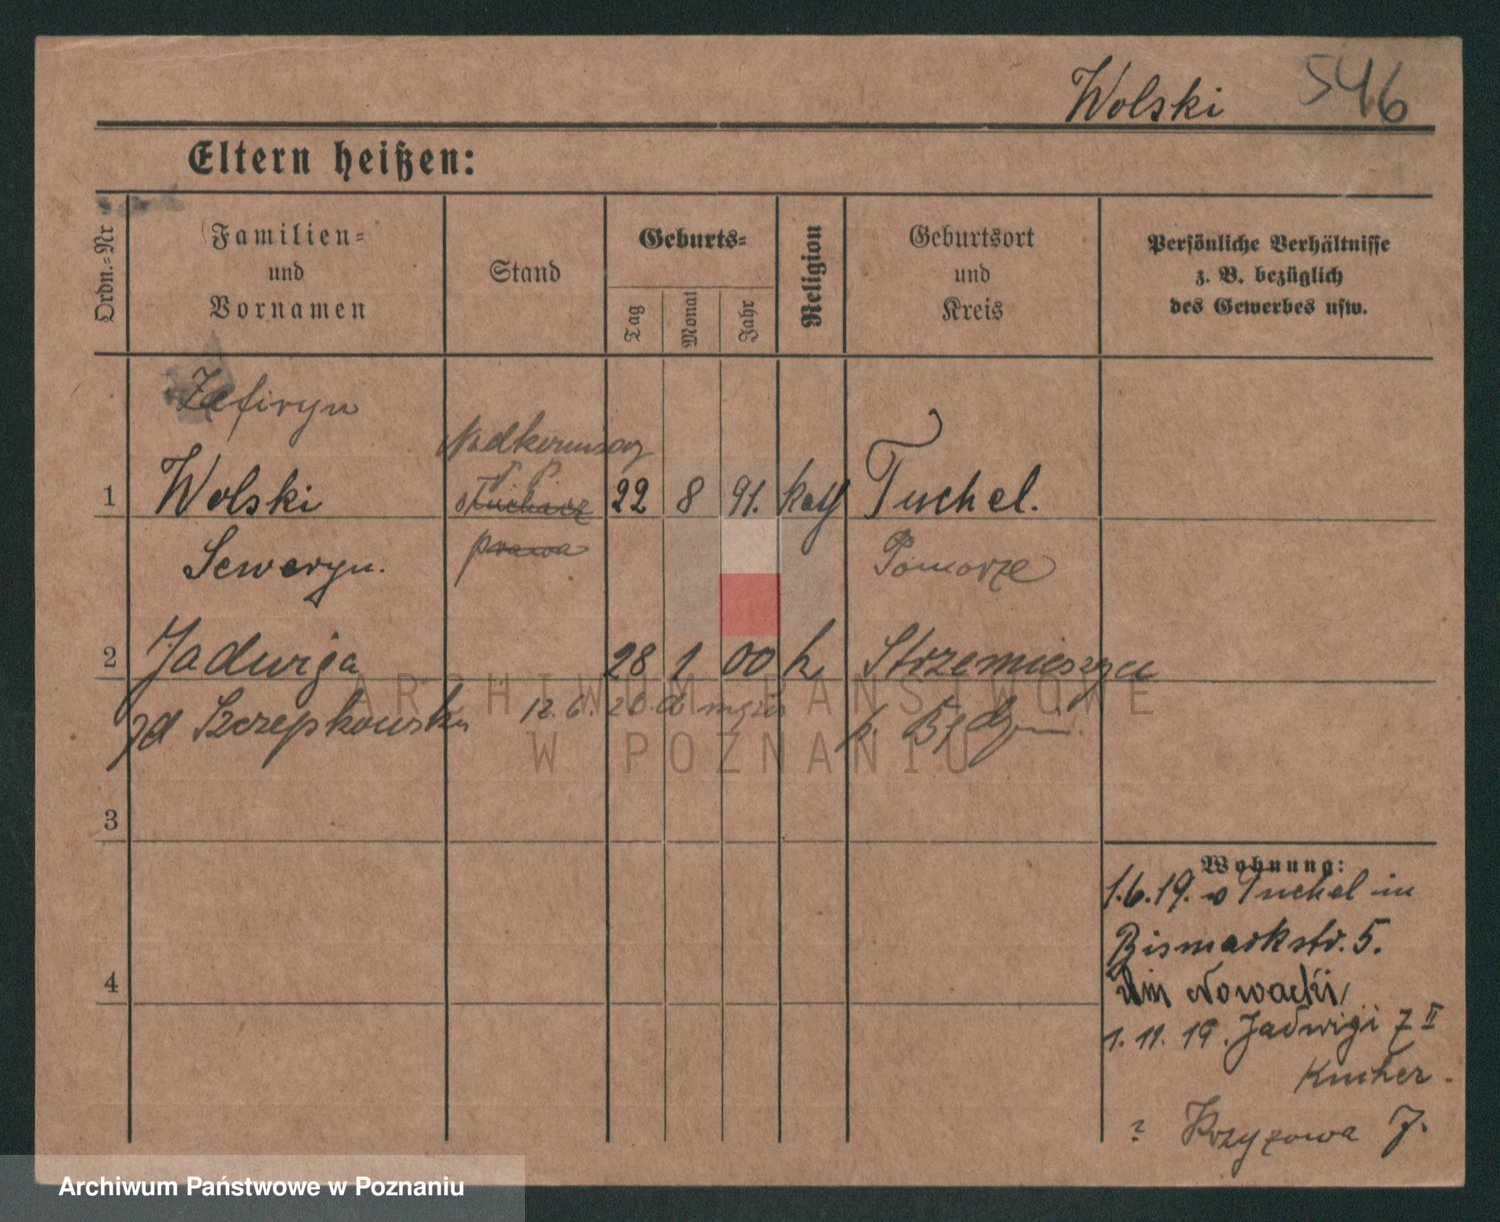 Wolski 546
Eltern heißen:
Ordn.-Nr
Familien-
und
Vornamen
Stand
Geburts-
Tag
Monat
Jahr
Religion
Geburtsort
und
Kreis
Persönliche Verhältnisse
z. B. bezüglich
des Gewerbes usw.
Zefiryn
1 Wolski 22 8 91. kath Tuchel.
Seweryn. prawa Pomorze
2 Jadwiga 28 1 00 k Strzemieszyce
zd Szczepkowska 12. 6. 20
ARCHIWUM PAŃSTWOWE
W POZNANIU
3
4
Wohnung:
1.6.19. v Tuchel in
Bismarkstr. 5.
Nowacki
1. 11. 19. Jadwigi 7 II
? Krzyzowa 7.
Archiwum Państwowe w Poznaniu